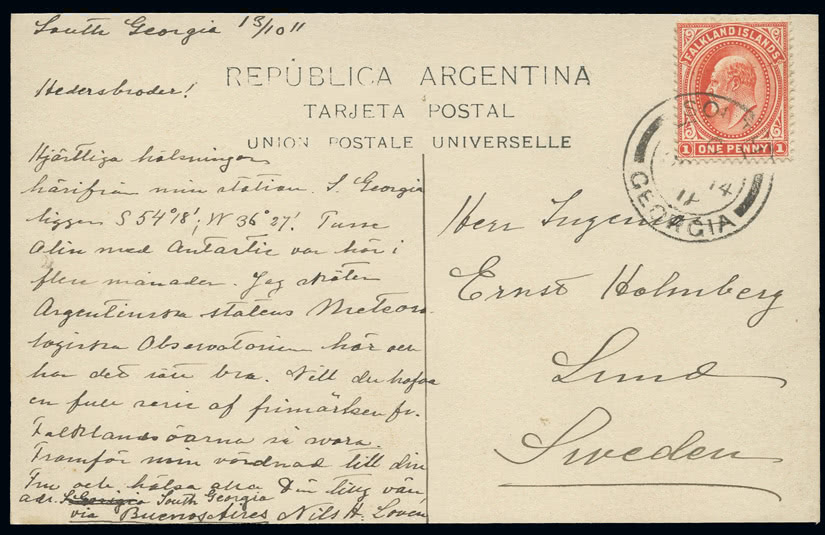 South Georgia 13/10 11
Hedersbroder!
REPÚBLICA ARGENTINA
TARJETA POSTAL
UNION POSTALE UNIVERSELLE
Hjärtliga hälsningar
härifrån min station. S. Georgia
ligger S 54°18'; W 36°27'. Ture
Olin med Antartic var här i
flere månader. Jag sköter
Argentinska statens Meteoro-
logiska Observatorium här och
har det bra. Vill du hafva
en full serie af frimärken fr.
Falklandsöarna så
Framför min vördnad till din
Fru och hälsa Din vän,
adr. S. Georgia South Georgia
via Buenos Aires Nils H. Loven
FALKLAND ISLANDS
1 ONE PENNY 1
SOUTH
14
11
GEORGIA
Herr
Ernst Holmberg
Lund
Sweden